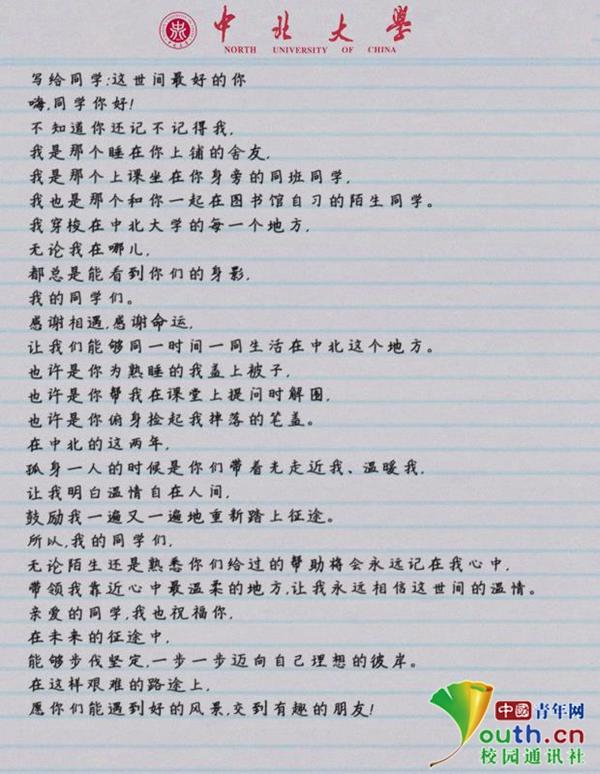 中北大學
NORTH UNIVERSITY OF CHINA
写给同学:这世间最好的你
嗨,同学你好!
不知道你还记不记得我,
我是那个睡在你上铺的舍友,
我是那个上课坐在你身旁的同班同学,
我也是那个和你一起在图书馆自习的陌生同学。
我穿梭在中北大学的每一个地方,
无论我在哪儿,
都总是能看到你们的身影,
我的同学们。
感谢相遇,感谢命运,
让我们能够同一时间一同生活在中北这个地方。
也许是你为熟睡的我盖上被子,
也许是你帮我在课堂上提问时解围,
也许是你俯身捡起我摔落的笔盖。
在中北的这两年,
孤身一人的时候是你们带着光走近我、温暖我,
让我明白温情自在人间,
鼓励我一遍又一遍地重新踏上征途。
所以,我的同学们,
无论陌生还是熟悉你们给过的帮助将会永远记在我心中,
带领我靠近心中最温柔的地方,让我永远相信这世间的温情。
亲爱的同学,我也祝福你,
在未来的征途中,
能够步伐坚定,一步一步迈向自己理想的彼岸。
在这样艰难的路途上,
愿你们能遇到好的风景,交到有趣的朋友!
中國青年网
youth.cn
校园通讯社